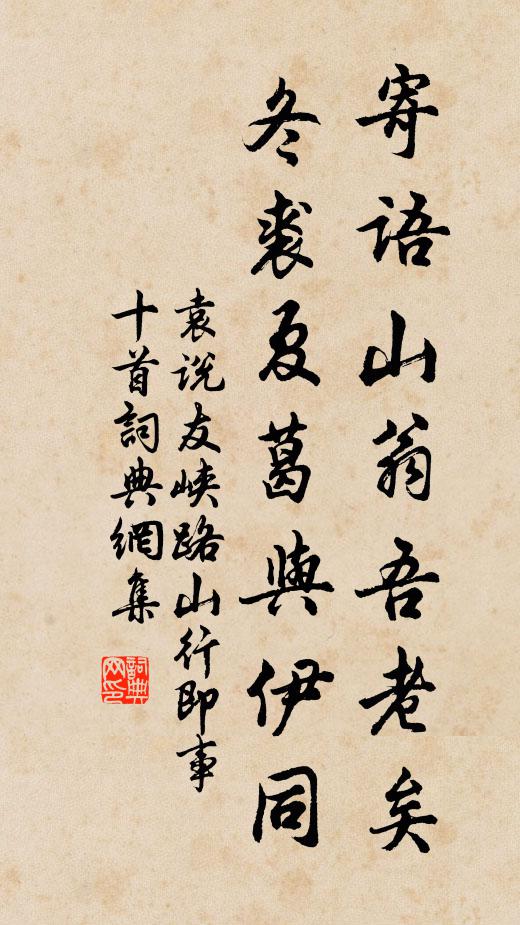 寄語山翁吾老矣
冬裘夏葛與伊同
袁说友峡路山行即事
十首詞典網集
詞典
网印